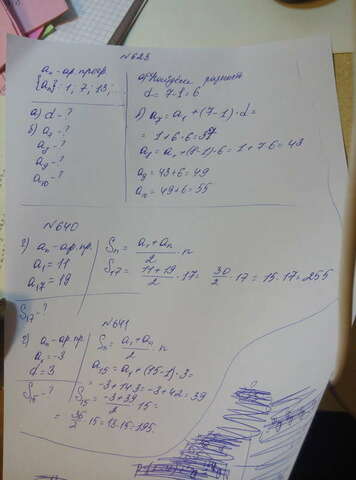 N623
aₙ - ар. прогр.
{aₙ}: 1, 7, 13;
а) d - ?
б) a₇ - ?
a₈ - ?
a₉ - ?
a₁₀ - ?
а) Найдём разность
d = 7-1 = 6
б) a₇ = a₁ + (7-1)·d =
= 1 + 6·6 = 37
a₈ = a₁ + (8-1)·6 = 1 + 7·6 = 43
a₉ = 43 + 6 = 49
a₁₀ = 49 + 6 = 55
N640
г) aₙ - ар. пр.
a₁ = 11
a₁₇ = 19
S₁₇ - ?
Sₙ = (a₁ + aₙ)/2 · n
S₁₇ = (11 + 19)/2 · 17 = 30/2 · 17 = 15·17 = 255
N641
г) aₙ - ар. пр.
a₁ = -3
d = 3
S₁₅ - ?
Sₙ = (a₁ + aₙ)/2 · n
a₁₅ = a₁ + (15-1)·3 =
= -3 + 14·3 = -3 + 42 = 39
S₁₅ = (-3 + 39)/2 · 15 =
= 36/2 · 15 = 13·15 = 195.